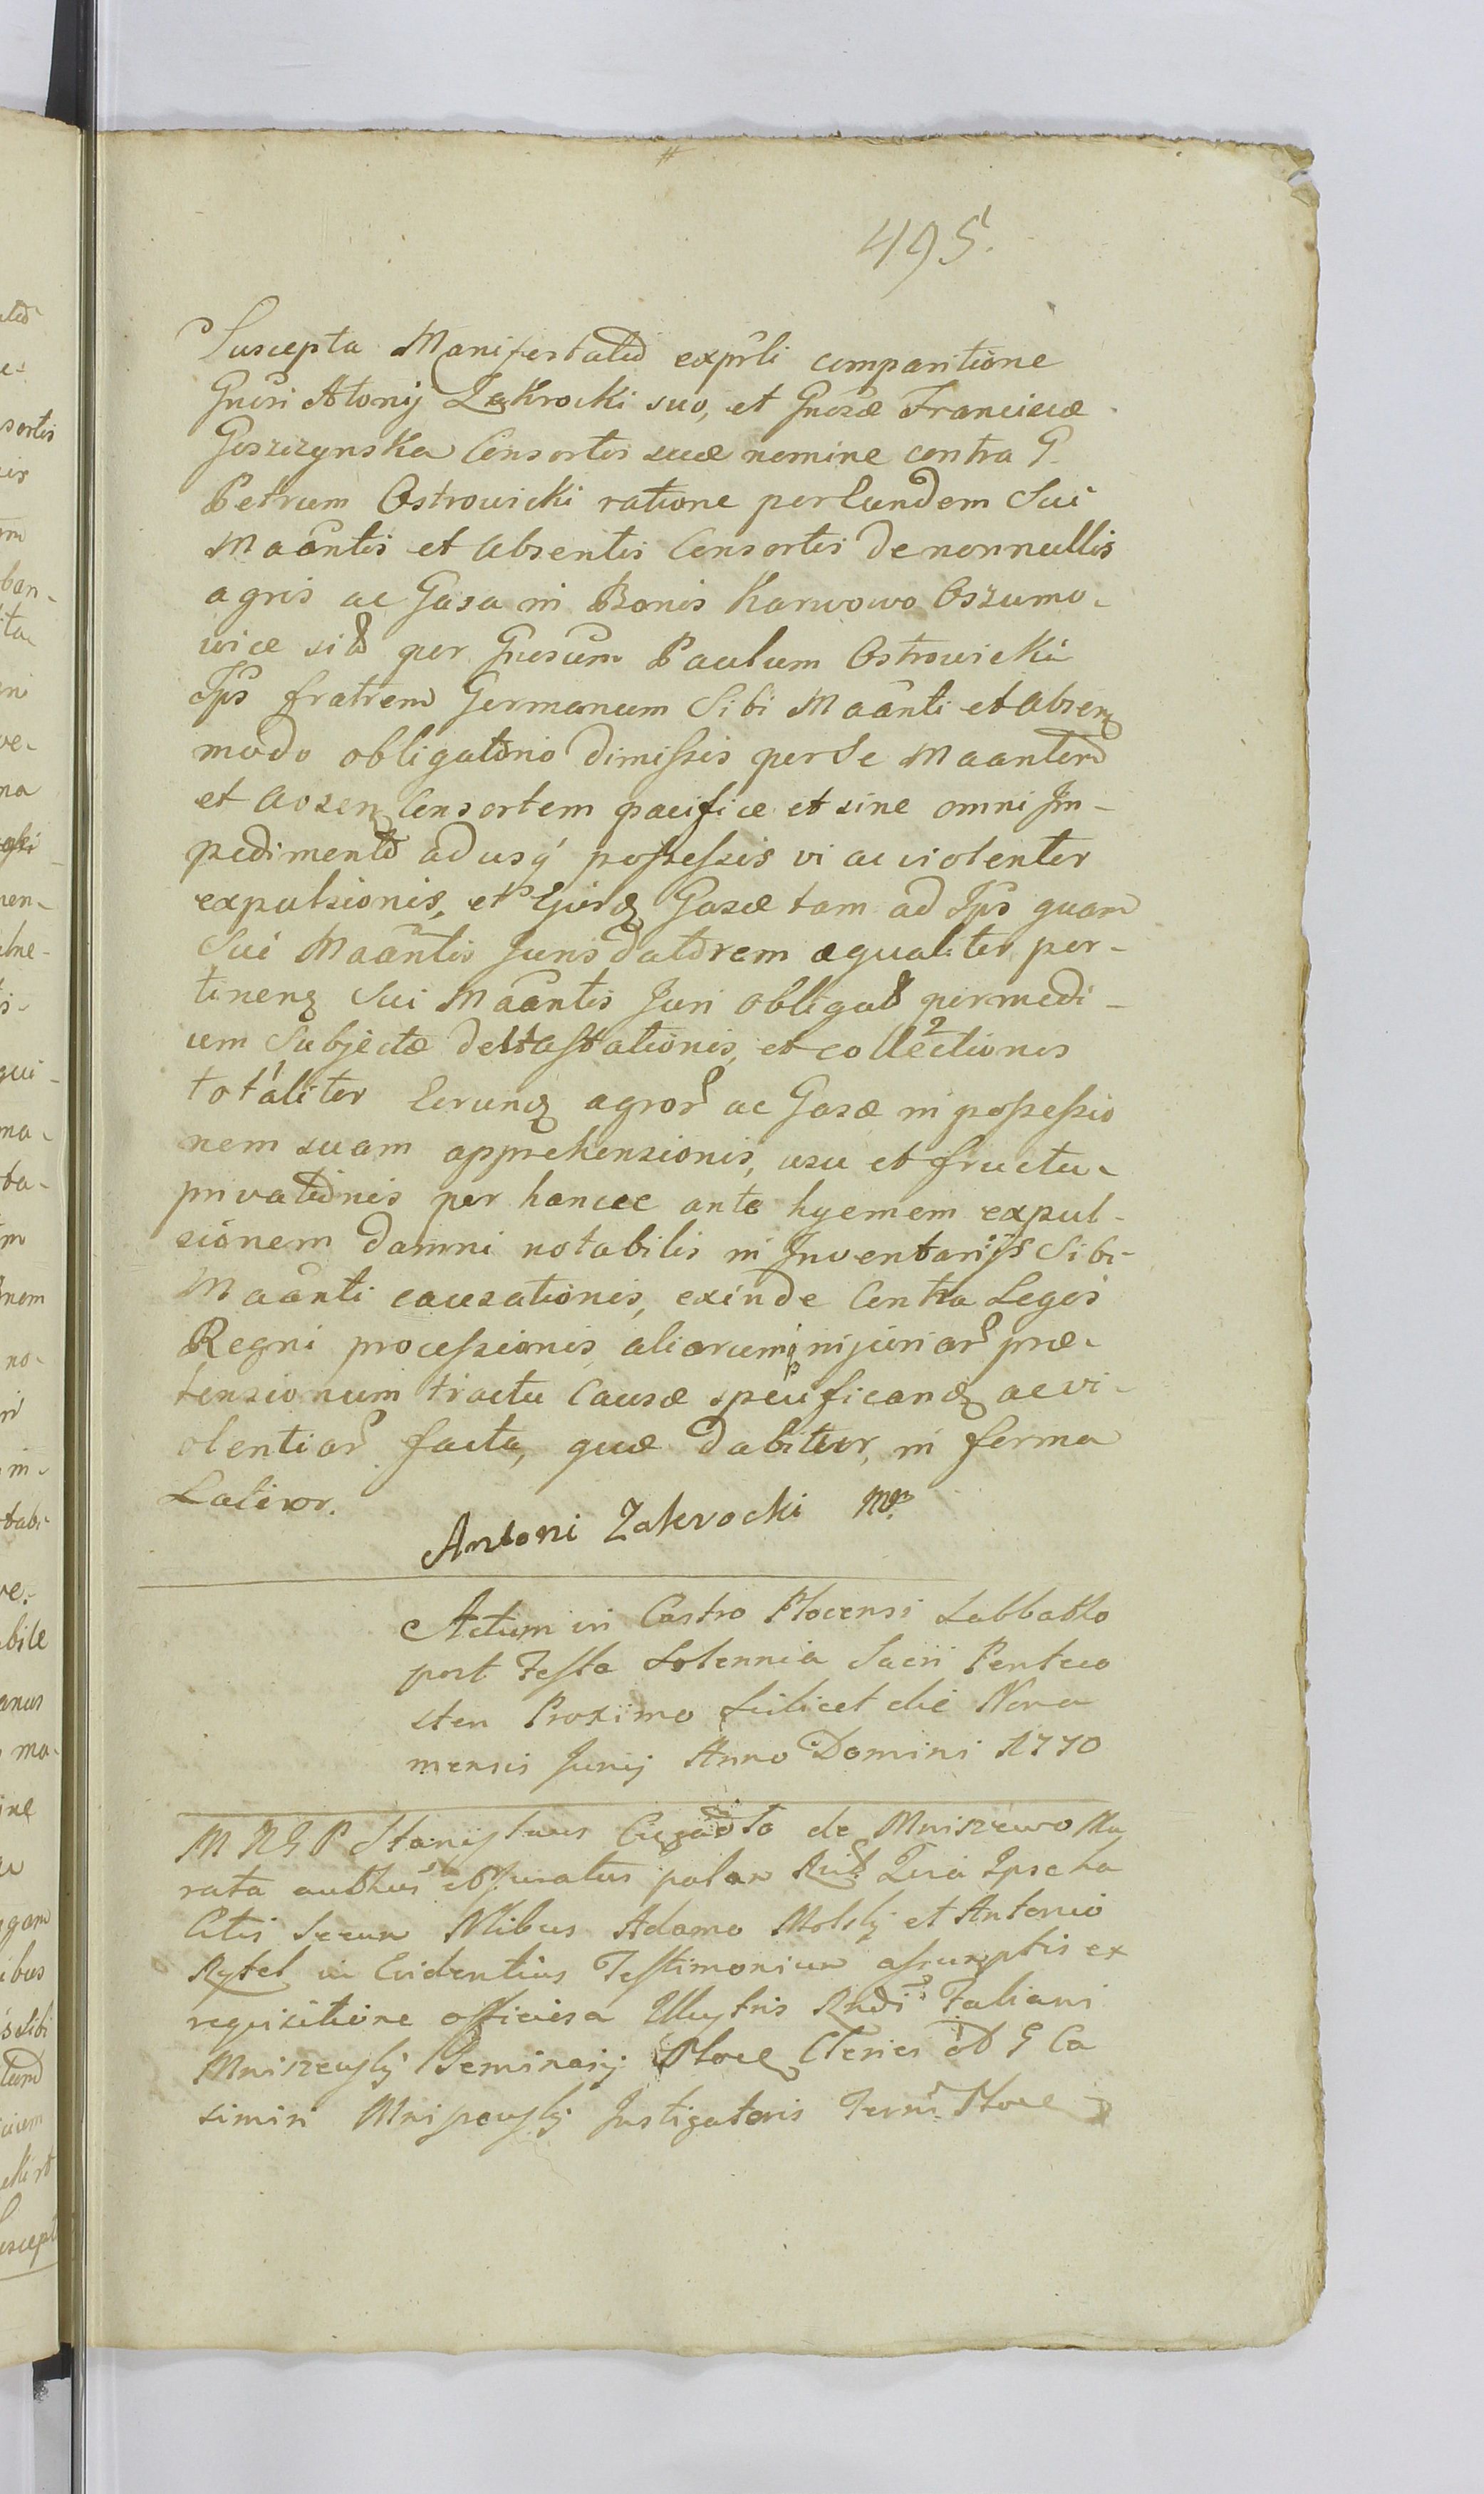 495.
Suscepta Manifestatio exprli comparitione
Gnosi Atonij Zakrocki suo, et Gnosæ Franciscæ
Goszczynska Consortis suæ nomine contra G.
Petrum Ostrowicki ratione per Eundem Sui
Maantis et absentis Consortis de nonnullis
agris ac Gasa in Bonis Karwowo Oszumo-
wice sitis per Gnosum Paulum Ostrowicki
Ips fratrem Germanum Sibi Maanti et absen
modo obligatorio dimissis per se Maantem
et absen Consortem pacifice et sine omni Im-
pedimento ad usq possessis vi ac violenter
expulsionis, et Ejusd Gasæ tam ad Ips quam
Sui Maantis Juris datorem æqualiter per-
tinen Sui Maantis Juri obligat per medi-
um Subjectæ devastationis, et collectionis
totaliter Eorund agror ac Gasæ in possessio
nem suam apprehensionis, usu et fructu
privationis per hancce ante hyemem expul-
sionem damni notabilis in Inventarijs Sibi
Maanti causationis, exinde Contra Leges
Regni processionis, aliarumq injuriar præ-
tensionum tractu Causæ specificand ac vi-
olentiar facta, quæ dabitur, in forma
Latior.
Antoni Zakrocki mp
Actum in Castro Plocensi Sabbatho
post Festa Solennia Sacri Penteco
sten Proximo scilicet die Nona
mensis Junij Anno Domini 1770
M R G P Stanislaus de Mniszewo Mu
rata authus et juratus palam Quia Ipse
Citis secum Nlibus Adamo Molskj et Antonio
Rytel in Evidentius Testimonium assumptis ex
requisitione officiosa Illustris Rndi Faliani
Mniszewskj Seminarij Ploce Clerici ad G Ca
simiri Mniszewskj Instigatoris Terris Ploce